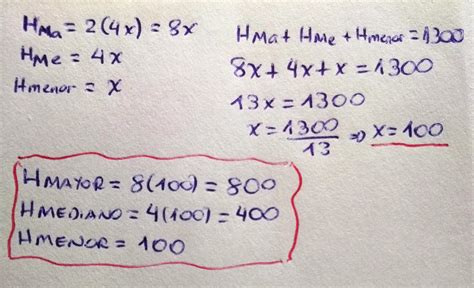 HMa = 2(4x) = 8x
HMe = 4x
Hmenor = x
HMa + HMe + Hmenor = 1300
8x + 4x + x = 1300
13x = 1300
x = 1300/13 ⇒ x = 100
HMAYOR = 8(100) = 800
HMEDIANO = 4(100) = 400
HMENOR = 100